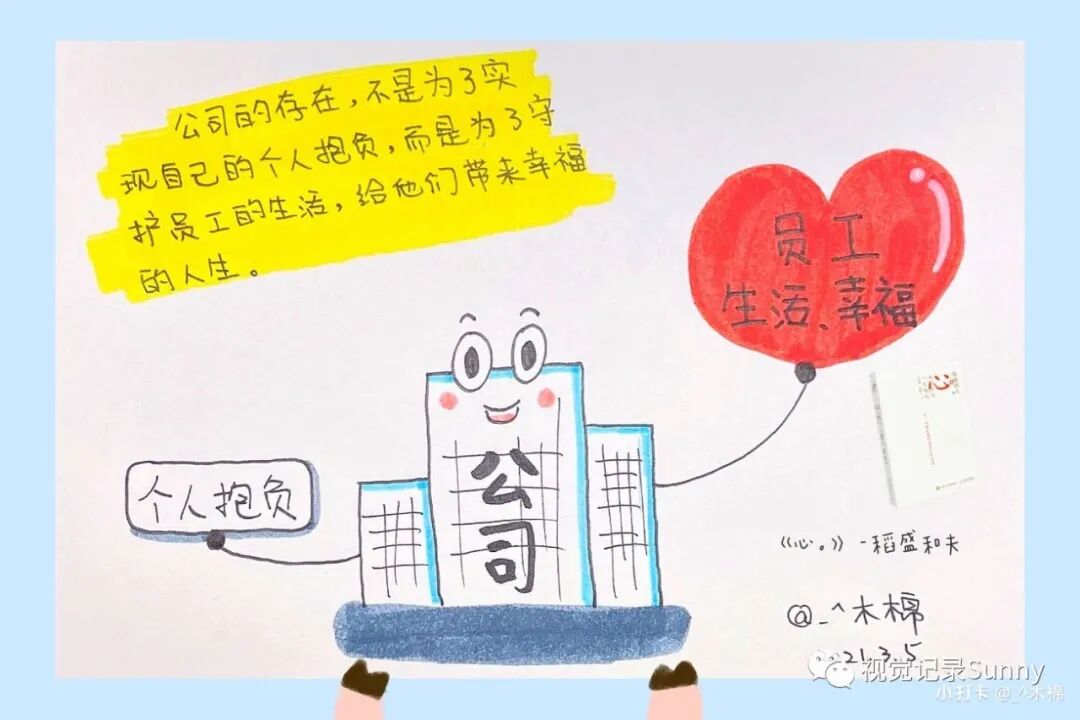 公司的存在，不是为了实
现自己的个人抱负，而是为了守
护员工的生活，给他们带来幸福
的人生。
员工
生活、幸福
个人抱负
公
司
心
《心。》-稻盛和夫
@_^木棉
21.3.5
视觉记录Sunny
小打卡 @_^木棉